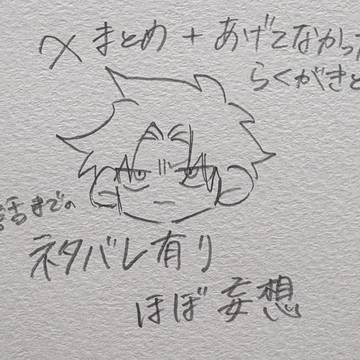 〆まとめ + あげてなかった
らくがきと
話までの
ネタバレ有り
ほぼ妄想